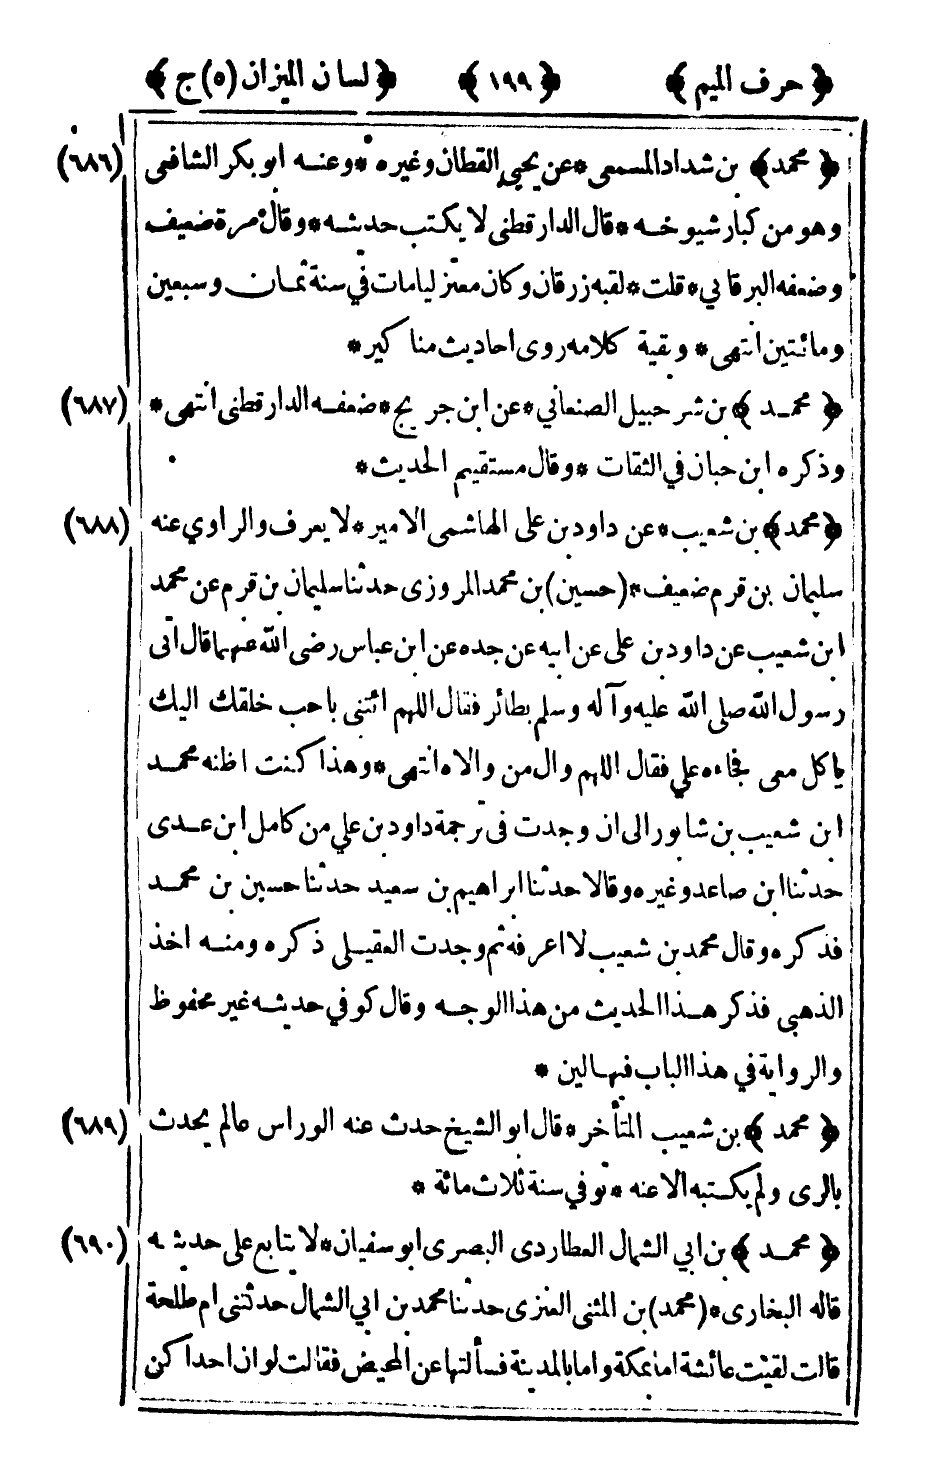 ﴿ حرف الميم ﴾ ﴿ ١٩٩ ﴾ ﴿ لسان الميزان (٥) ج ﴾
﴿ محمد ﴾ بن شداد المسمعى * عن يحيى القطان وغيره * وعنه ابو بكر الشافعى (٦٨٦)
وهو من كبار شيوخه * قال الدارقطنى لا يكتب حديثه * وقال مرة ضعيف
وضعفه البرقاني * قلت * لقبه زرقان وكان معتزليا مات في سنة ثمان وسبعين
ومائتين انتهى * وبقية كلامه روى احاديث مناكير *
﴿ محمد ﴾ بن شرحبيل الصنعاني * عن ابن جريج * ضعفه الدارقطنى انتهى * (٦٨٧)
وذكره ابن حبان في الثقات * وقال مستقيم الحديث *
﴿ محمد ﴾ بن شعيب * عن داود بن على الهاشمى الامير * لا يعرف والراوي عنه (٦٨٨)
سليمان بن قرم ضعيف * (حسين) بن محمد المروزى حدثنا سليمان بن قرم عن محمد
ابن شعيب عن داود بن على عن ابيه عن جده عن ابن عباس رضى الله عنهما قال اتى
رسول الله صلى الله عليه وآله وسلم بطائر فقال اللهم ائتنى باحب خلقك اليك
ياكل معى فجاءه علي فقال اللهم وال من والاه انتهى * وهذا كنت اظنه محمد
ابن شعيب بن شابور الى ان وجدت في ترجمة داود بن علي من كامل ابن عدى
حدثنا ابن صاعد وغيره وقالا حدثنا ابراهيم بن سعيد حدثنا حسين بن محمد
فذكره وقال محمد بن شعيب لا اعرفه ثم وجدت العقيلى ذكره ومنه اخذ
الذهبى فذكر هذا الحديث من هذا الوجه وقال كوفي حديثه غير محفوظ
والرواية في هذا الباب فيها لين *
﴿ محمد ﴾ بن شعيب المتأخر * قال ابو الشيخ حدث عنه الوراس عالم يحدث (٦٨٩)
بالرى ولم يكتبه الا عنه * توفي سنة ثلاث مائة *
﴿ محمد ﴾ بن ابي الشمال العطاردى البصرى ابو سفيان * لا يتابع على حديثه (٦٩٠)
قاله البخارى * (محمد) بن المثنى العنزى حدثنا محمد بن ابي الشمال حدثتنى ام طلحة
قالت لقيت عائشة اما بمكة واما بالمدينة فسألتها عن المحيض فقالت لو ان احداكن